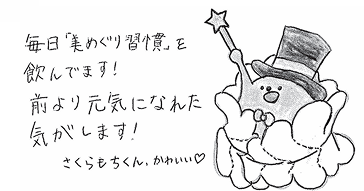 毎日「美めぐり習慣」を
飲んでます!
前より元気になれた
気がします!
さくらもちくん、かわいい♡